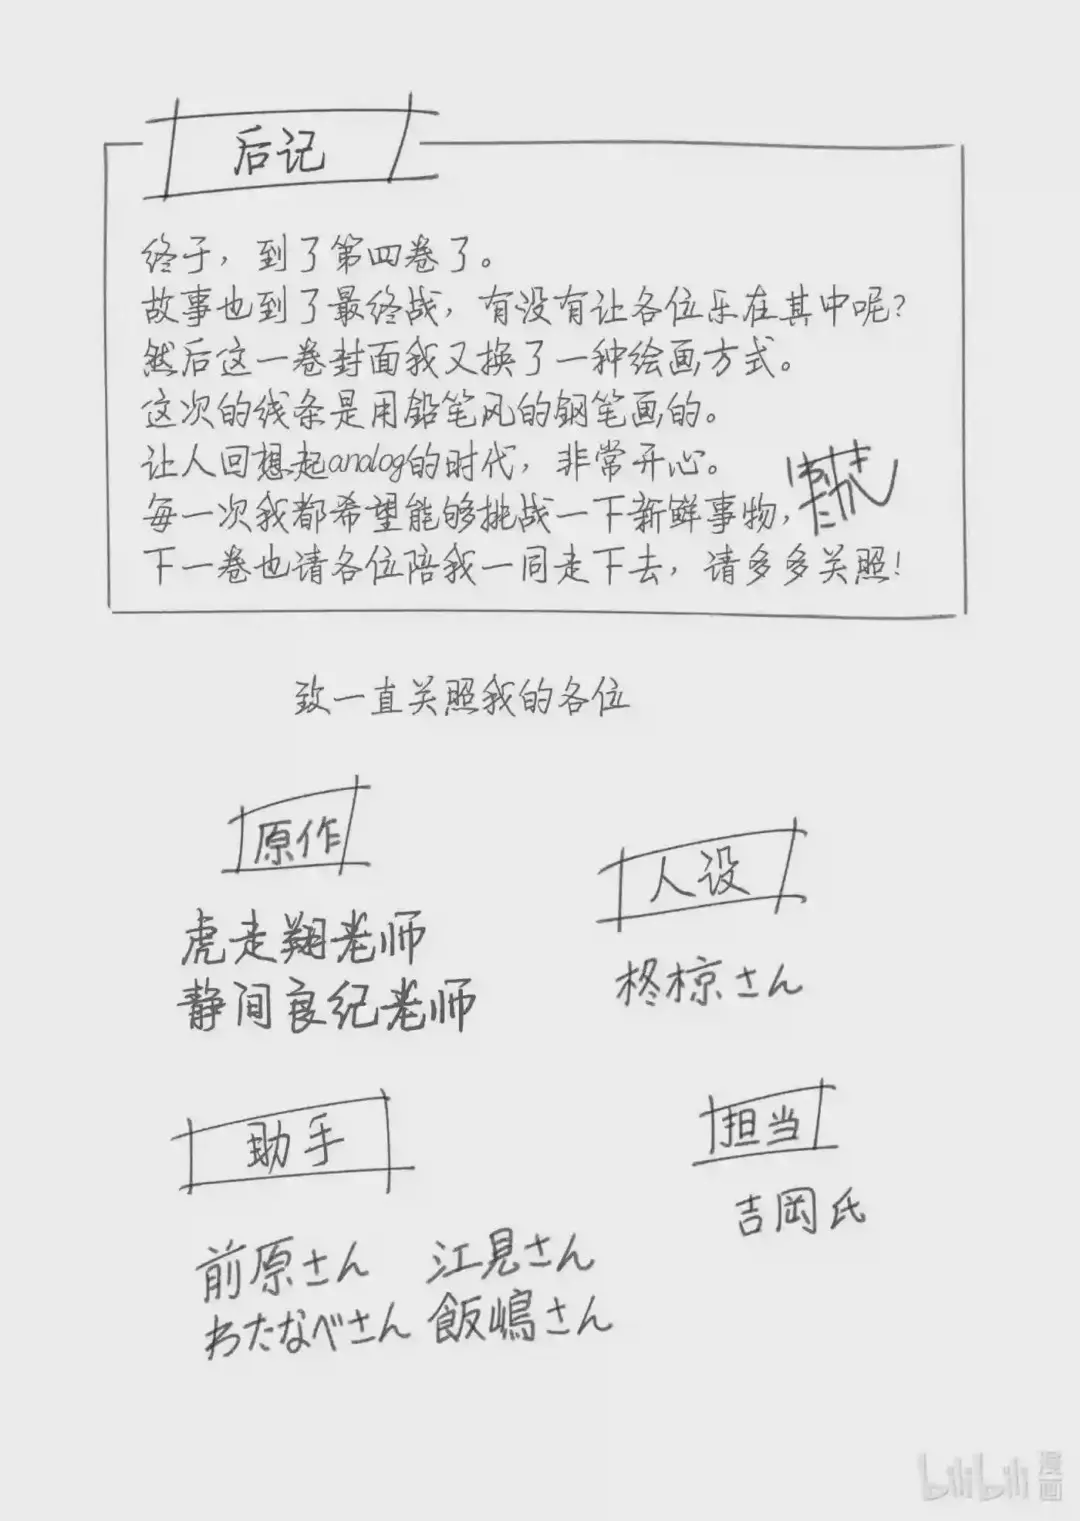 后记
终于，到了第四卷了。
故事也到了最终战，有没有让各位乐在其中呢？
然后这一卷封面我又换了一种绘画方式。
这次的线条是用铅笔风的钢笔画的。
让人回想起analog的时代，非常开心。
每一次我都希望能够挑战一下新鲜事物，
下一卷也请各位陪我一同走下去，请多多关照！
致一直关照我的各位
原作
虎走翔老师
静间良纪老师
人设
柊椋さん
助手
前原さん 江見さん
わたなべさん 飯嶋さん
担当
吉岡氏
bilibili 漫画